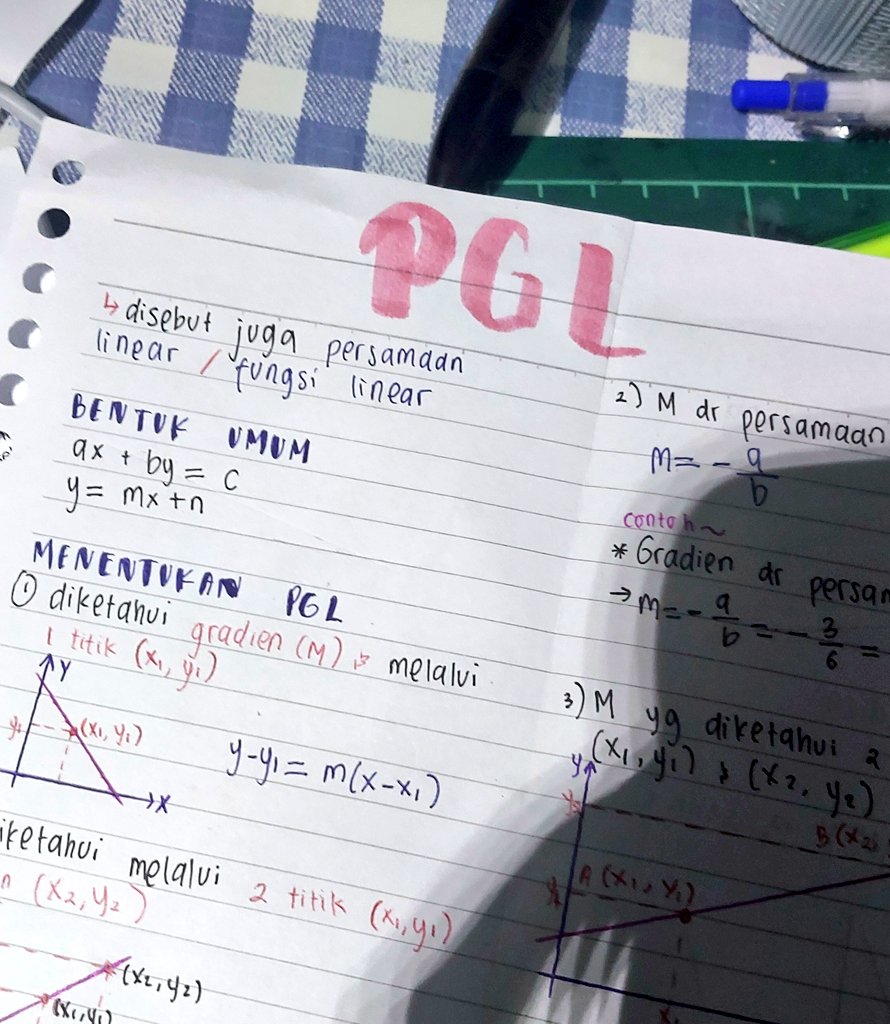 PGL
↳ disebut juga persamaan
linear / fungsi linear
BENTUK UMUM
ax + by = c
y = mx + n
MENENTUKAN PGL
① diketahui gradien (M) & melalui
1 titik (x₁, y₁)
y
y₁
(x₁, y₁)
x
y-y₁ = m(x-x₁)
iketahui melalui 2 titik (x₁, y₁)
n (x₂, y₂)
(x₂, y₂)
(x₁, y₁)
2) M dr persamaan
m = - a/b
contoh~
* Gradien dr persam
→ m = - a/b = - 3/6 =
3) M yg diketahui 2
(x₁, y₁) & (x₂, y₂)
y
y₂
B (x₂,
A (x₁, y₁)
y₁
x₁